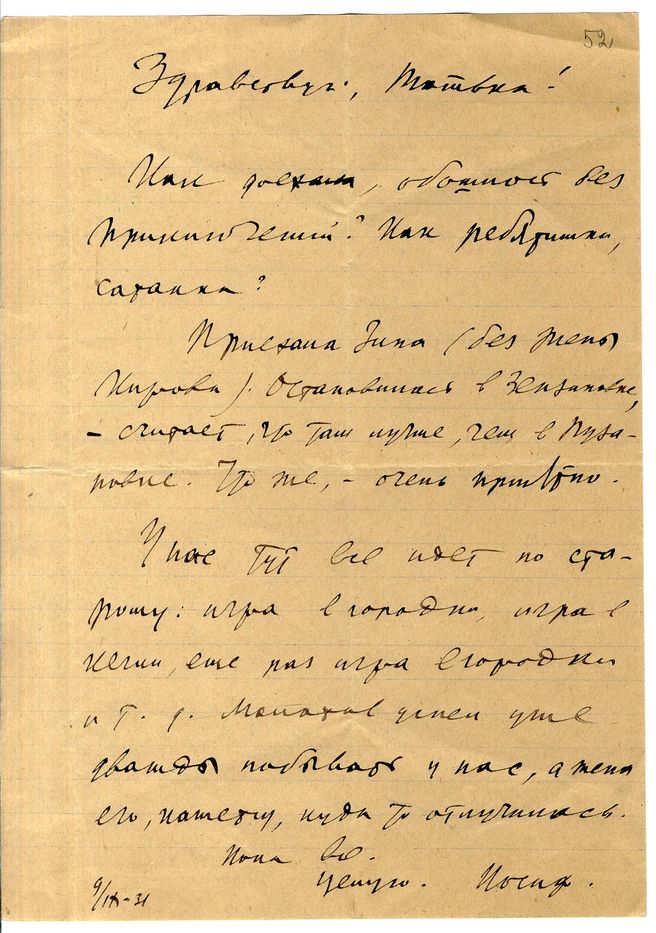 52
Здравствуй, Татька!
Как доехала, обошлось без
приключений? Как ребятишки,
Сатанка?
Приехала Зина (без жены
Кирова). Остановилась в Зензиновке,
– считает, что там лучше, чем в Пуза-
новке. Что же, – очень приятно.
У нас тут все идет по ста-
рому: игра в городки, игра в
кегли, еще раз игра в городки
и т. д. Молотов успел уже
дважды побывать у нас, а жена
его, кажется, куда то отлучилась.
Пока все.
Целую. Иосиф.
9/IX–31